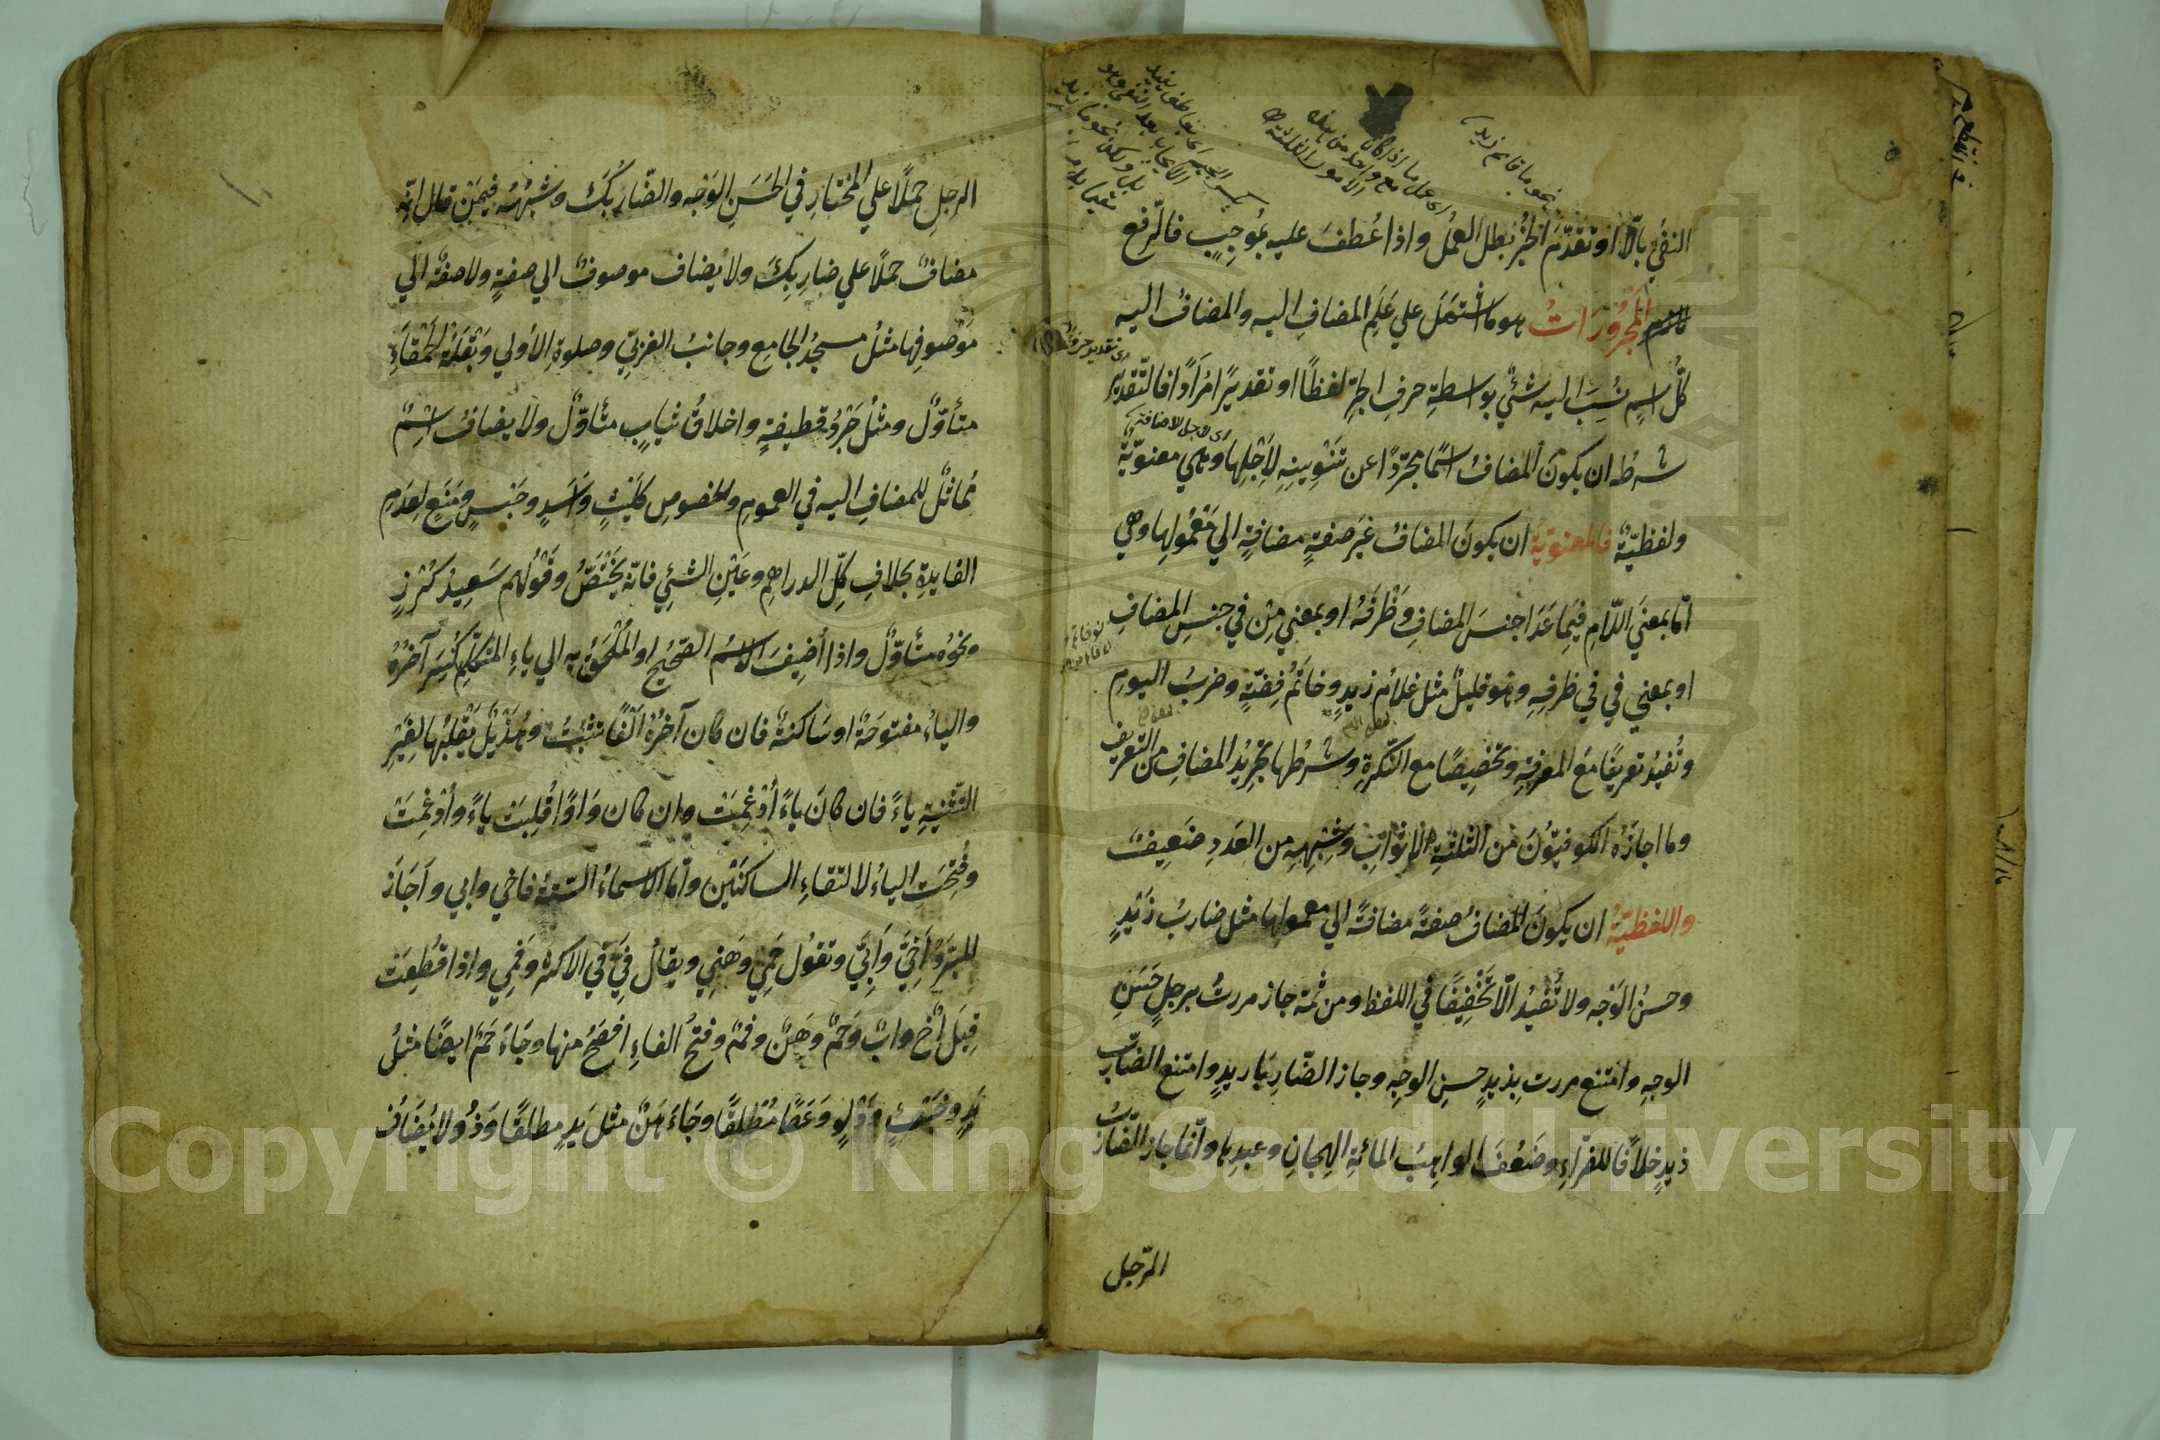 نحو ما قام زيد
النفي بالّا او تقدّمَ الخبرُ بطل العملُ واذا عُطفَ عليه بمُوجِبٍ فالرّفع
المجرُورَاتُ هو ما اشتَمَلَ علي عَلَمِ المضافِ اليه والمضافُ اليه
كلُّ اسمٍ نُسِبَ اليه شئٌ بواسطةِ حرفِ الجرّ لفظًا او تقديرًا مُرَادًا فالتّقديرُ
اى لاجل الاضافة
شرطُه ان يكونَ المضافُ اسمًا مجرّدًا عن تنوينِهِ لِاَجْلِها وهي معنويّةٌ
ولفظيّةٌ فالمعنويّة ان يكونَ المضافُ غيرَ صفةٍ مضافةٍ الي مَعْمُولِها وهي
امّا بمعنَي اللّامِ فِيمَا عَدَا جنسَ المضافِ وَظَرفَهُ او بمعني مِنْ في جنسِ المضافِ
او بمعني في في ظرفِهِ وهو قليلٌ مثل غلامُ زيدٍ وخاتَمُ فِضّةٍ وضربُ اليومِ
وتُفيدُ تعريفًا مَعَ المعرفةِ وتخصِيصًا مع النّكرةِ وشرطُها تجريدُ المضافِ من التّعريف
وما اجازَهُ الكوفيّونَ مِن الثلثةِ الاثوابِ وشِبْهِهِ من العَددِ ضَعِيفٌ
واللفظيّةُ ان يكونَ المضافُ صفةً مضافةً الي معمولِها مثل ضاربُ زَيْدٍ
وحسنُ الوَجْه ولا تُفيدُ الّا تَخْفِيفًا في اللفظ ومن ثمّة جاز مررتُ برجلٍ حَسَنِ
الوجهِ وامتنع مررت بزيدٍ حسنِ الوجهِ وجاز الضّارِبَا زيدٍ وامتنع الضّاربُ
زيدٍ خلافًا للفرّاءِ وضَعُفَ الواهبُ المائةِ الهِجانِ وعبدِها وانّما جاز الضّاربُ
الرّجل
الرجلِ حملًا علي المختارِ في الحَسَنِ الوَجْه والضّاربُكَ وشبْهُهُ فيمَنْ قال انّه
مضافٌ حملًا علي ضاربِكَ ولا يُضاف موصوفٌ الي صفةٍ ولا صفةٌ الي
مَوْصوفِها مثلُ مسجدُ الجامع وجانبُ الغربيّ وصلوةِ الاُولي وبَقْلَةُ الحَمْقَاءِ
متأوّلٌ ومثلُ جَرْدُ قطيفةٍ واخلاقُ ثيابٍ متأوّلٌ ولا يضافُ اسْمٌ
مُماثلٌ للمضافِ اليه في العمومِ والخصوصِ كلَيْثٍ وَاَسَدٍ وحَبْسٍ ومَنْعٍ لعَدَمِ
الفايدةِ بخلافِ كلّ الدراهِم وعَيْنِ الشئِ فانّه يَخْتَصُّ وقَوْلُهم سَعِيدُ كُرْزٍ
ونحوُه متأوّلٌ واذا أُضِيفَ الاسْمُ الصّحيحُ او المُلْحَقُ به الي ياءِ المتكلّمِ كُسِرَ آخرُهُ
والياءُ مفتوحَةٌ او سَاكنةٌ فان كان آخرُهُ اَلْفًا تثْبُتُ وهُذَيْلٌ يَقْلِبُها لغَيْرِ
التّثنيةِ ياءً فان كانَ ياءً أُدْغِمَتْ وان كان وَاوًا قُلِبَت ياءً وأُدْغِمَتْ
وفُتِحَتِ الياءُ لالتقاءِ الساكنَيْن وامّا الاسماءُ السّتةُ فاخي وابي واَجَازَ
المبرَّدُ اَخِيَّ وَاَبِيَّ وتقولُ حَمِي وَهَنِي ويقالُ فِيَّ في الاكثرِ وفَمِي واذا قُطِعَتْ
قِيلَ أخٌ وابٌ وَحَمٌ وَهَنٌ وفمٌ وفتحُ الفاءِ افصَحُ منها وجَاءَ حَمٌ ايضًا مثلُ
يَدٍ وخَبْءٍ ودَلْوٍ وَعَصًا مُطْلقًا وجَاءَ هَنٌ مثل يَدٍ مطلقًا وَذُو لا يُضَافُ
Copyright © King Saud University